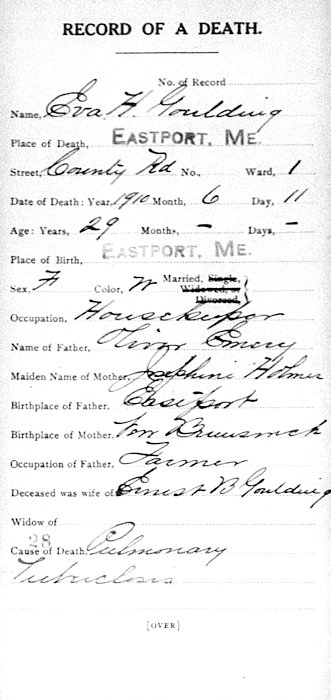 RECORD OF A DEATH.
No. of Record
Name, Eva H. Goulding
Place of Death, EASTPORT, ME.
Street, County Rd No., Ward, 1
Date of Death: Year, 1910 Month, 6 Day, 11
Age: Years, 29 Months, - Days, -
Place of Birth, EASTPORT, ME.
Sex, F Color, W Married, Single,
Widowed, or
Divorced,
Occupation, Housekeeper
Name of Father, Oliver Emery
Maiden Name of Mother, Josephine Holmes
Birthplace of Father, Eastport
Birthplace of Mother, New Brunswick
Occupation of Father, Farmer
Deceased was wife of Ernest B Goulding
Widow of
28
Cause of Death, Pulmonary
Tuberclosis
[OVER]